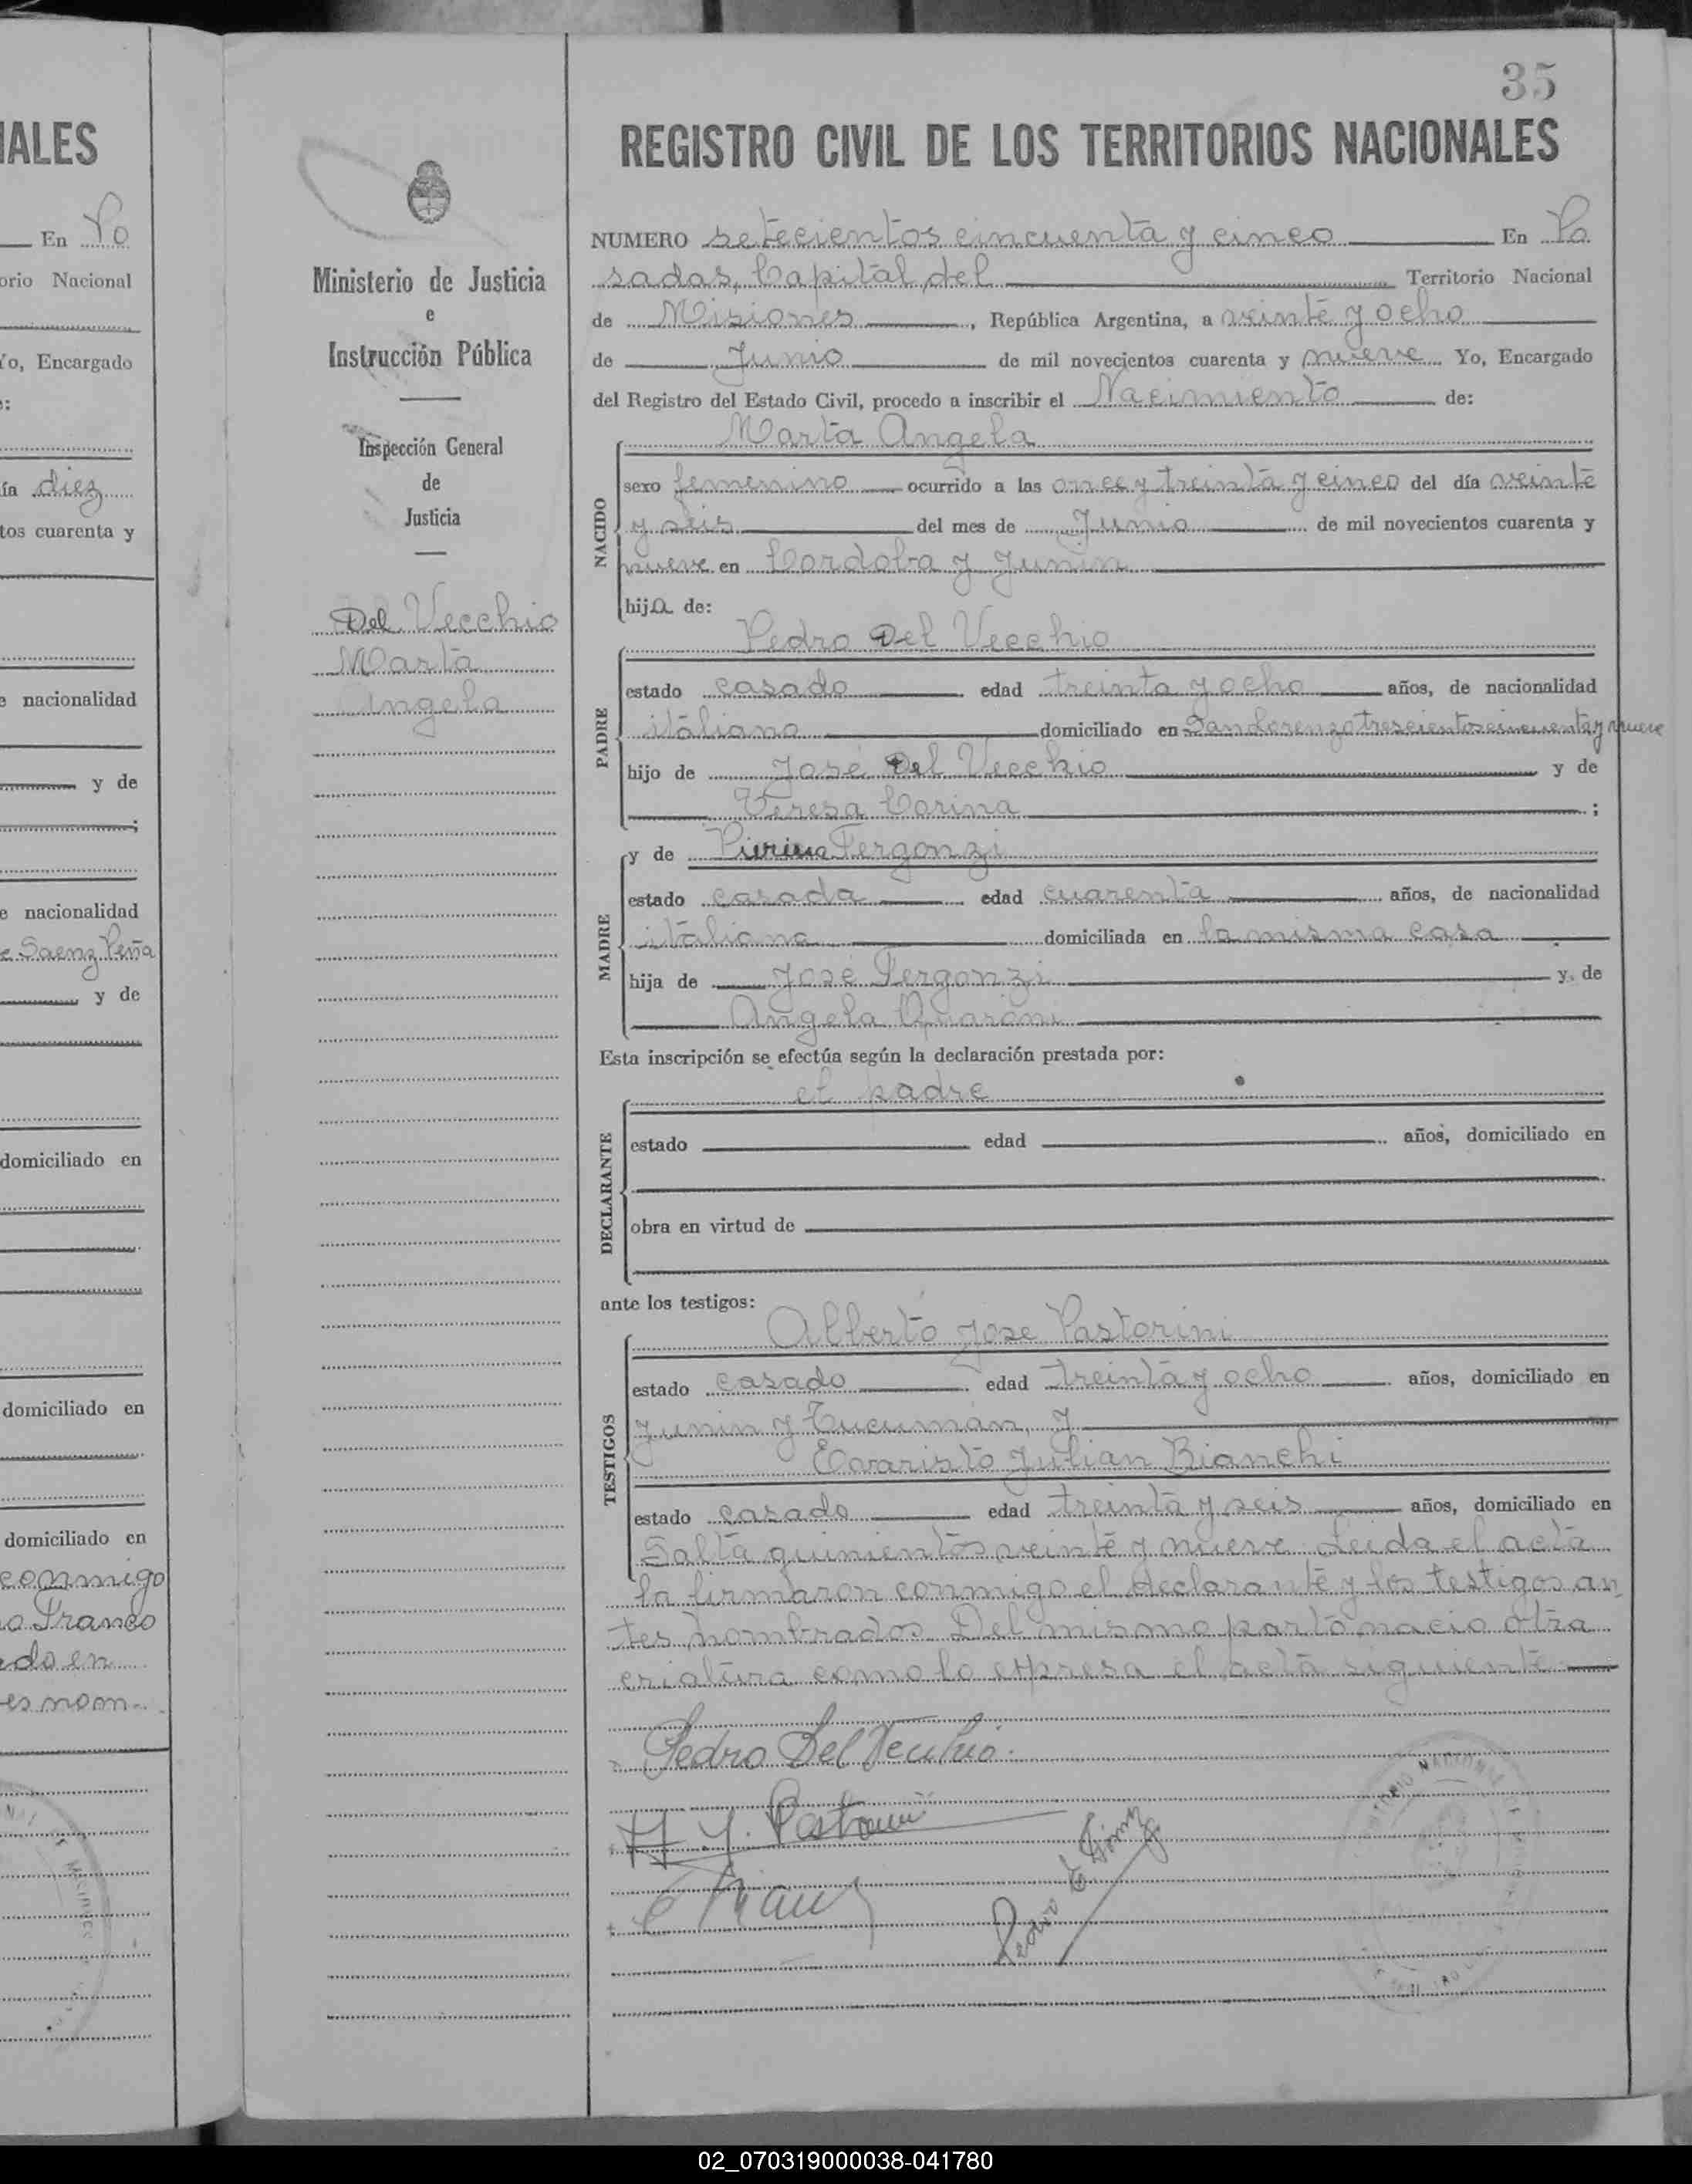 35
REGISTRO CIVIL DE LOS TERRITORIOS NACIONALES
NUMERO setecientos cincuenta y cinco En Po
sadas, Capital del Territorio Nacional
de Misiones, República Argentina, a veinte y ocho
de Junio de mil novecientos cuarenta y nueve Yo, Encargado
del Registro del Estado Civil, procedo a inscribir el Nacimiento de:
Marta Angela
NACIDO
sexo femenino ocurrido a las once y treinta y cinco del día veinte
y seis del mes de Junio de mil novecientos cuarenta y
nueve en Cordoba y Junin
hija de:
Pedro Del Vecchio
PADRE
estado casado edad treinta y ocho años, de nacionalidad
italiana domiciliado en San Lorenzo trescientos cincuenta y nueve
hijo de José Del Vecchio y de
Teresa Corina ;
MADRE
y de Pierina Fergonzi
estado casada edad cuarenta años, de nacionalidad
italiana domiciliada en la misma casa
hija de José Fergonzi y de
Angela Quaroni
Esta inscripción se efectúa según la declaración prestada por:
el padre
DECLARANTE
estado edad años, domiciliado en
obra en virtud de
ante los testigos:
Alberto Jose Pastorini
TESTIGOS
estado casado edad treinta y ocho años, domiciliado en
Junin y Tucumán, y
Evaristo Julian Bianchi
estado casado edad treinta y seis años, domiciliado en
Salta quinientos veinte y nueve Leida el acta
la firmaron conmigo el declarante y los testigos an
tes nombrados. Del mismo parto nacio otra
criatura como lo expresa el acta siguiente
Pedro Del Vecchio
Ministerio de Justicia
e
Instrucción Pública
Inspección General
de
Justicia
Del Vecchio
Marta
Angela
IALES
En Po
orio Nacional
Yo, Encargado
ía diez
tos cuarenta y
e nacionalidad
y de
e nacionalidad
e Saenz Peña
y de
domiciliado en
domiciliado en
domiciliado en
conmigo
o Franco
ado en
es nom-
02_070319000038-041780